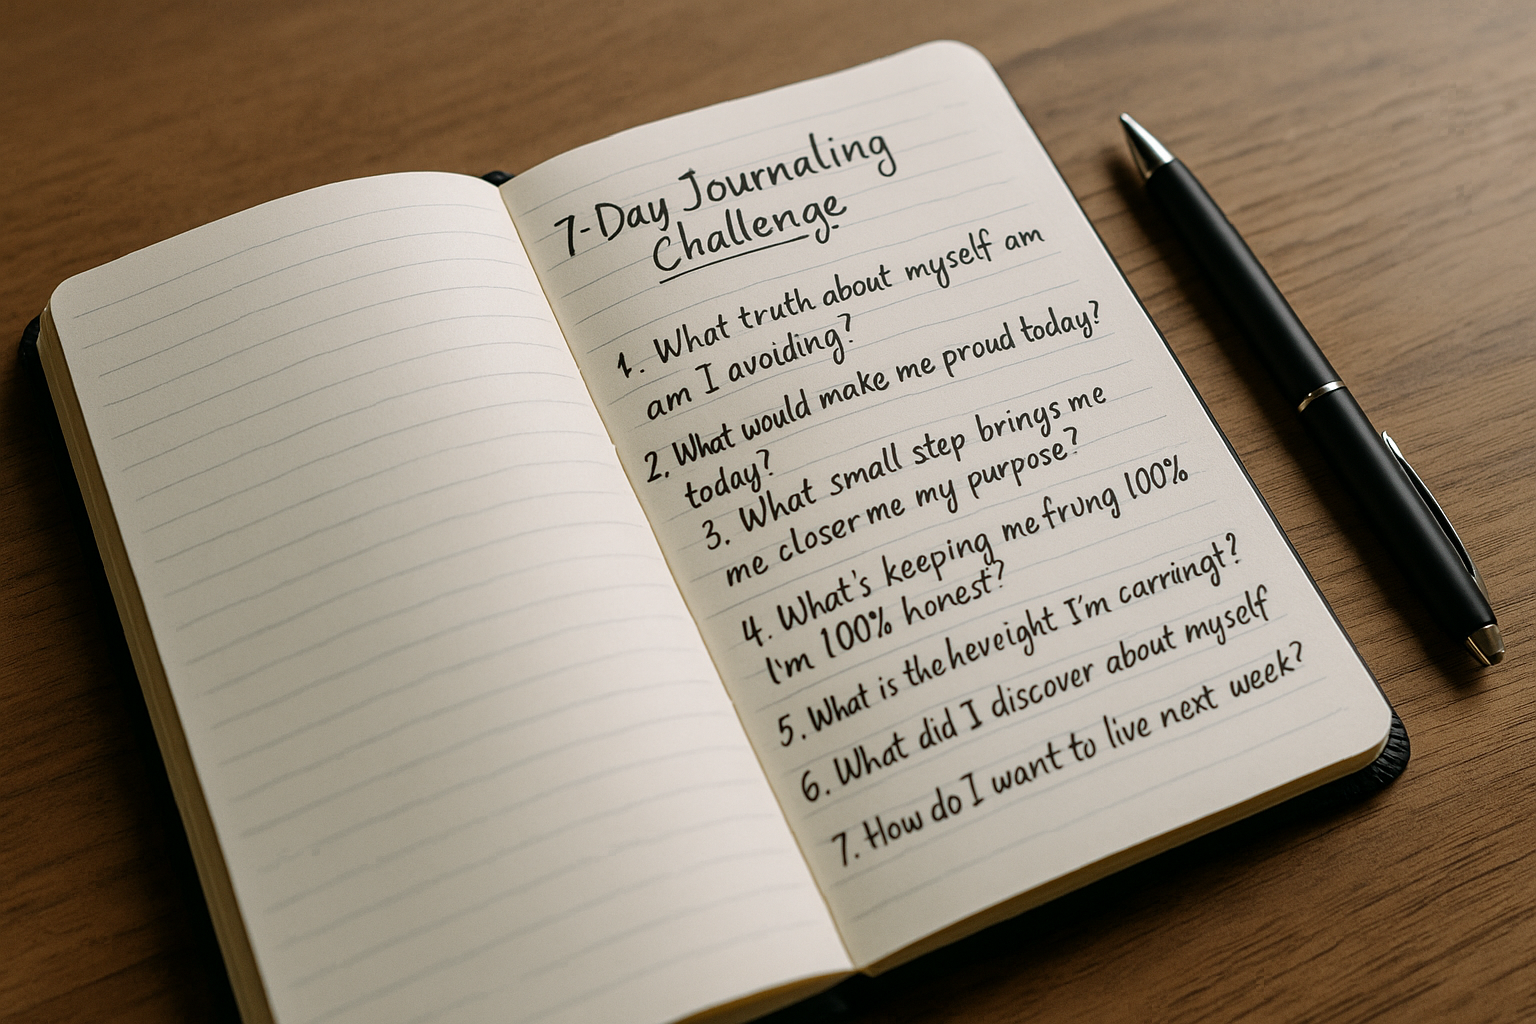 7-Day Journaling
Challenge
1. What truth about myself am
am I avoiding?
2. What would make me proud today?
today?
3. What small step brings me
me closer me my purpose?
4. What's keeping me frung 100%
I'm 100% honest?
5. What is the heveight I'm carriingt?
6. What did I discover about myself
7. How do I want to live next week?